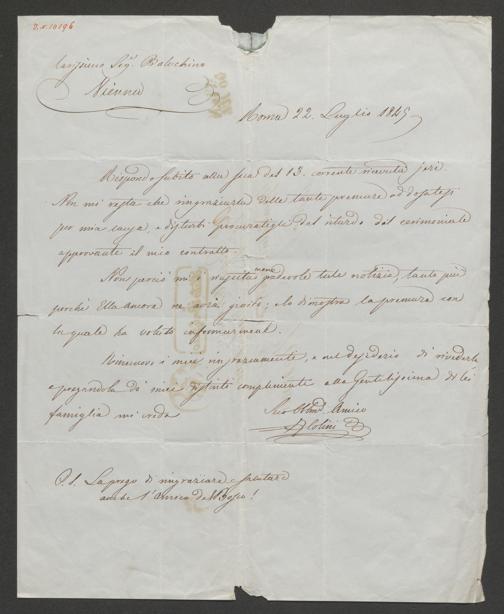 Carissimo Sigr. Balochino
Vienna
Roma 22. Luglio 1845
Rispondo subito alla sua del 13. corrente ricevuta jeri.
Non mi resta che ringraziarla delle tante premure addossatesi
per mia causa, e disturbi procuratigli dal ritardo del cerimoniale
approvante il mio contratto.
Non perciò mi è riuscita meno piacevole tale notizia, tanto più
perché Ella ancora ne avrà gioito; lo dimostra la premura con
la quale ha voluto informarmene.
Rinnovo i miei ringraziamenti, e nel desiderio di rivederla
e pregandola de' miei distinti complimenti alla Gentilissima di lei
famiglia mi creda
Suo Obmo. Amico
P. S. La prego di ringraziare e salutare
anche l'amico